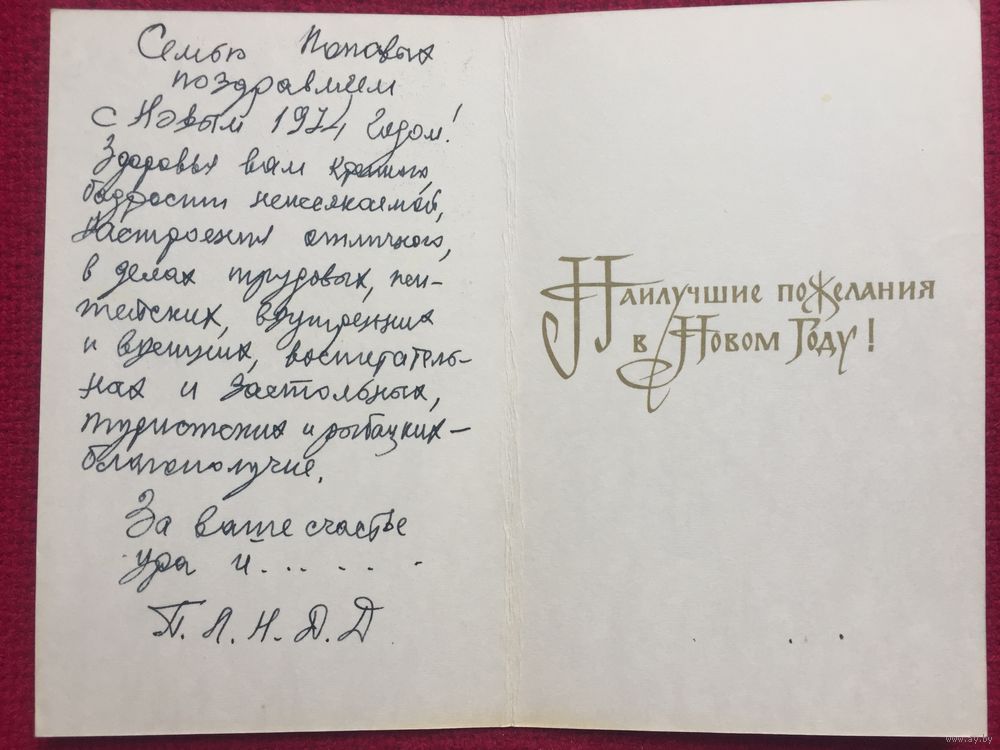 Семью Поповых
поздравляем
с Новым 1974 годом!
Здоровья вам крепкого,
бодрости неиссякаемой,
Настроения отличного,
в делах трудовых,
внутренних
и внешних, воспитатель-
ных и застольных,
туристских и рыбацких —
благополучие.
За ваше счастье
ура и......
П. Л. Н. Д. Д
Наилучшие пожелания
в Новом Году!
www.ay.by